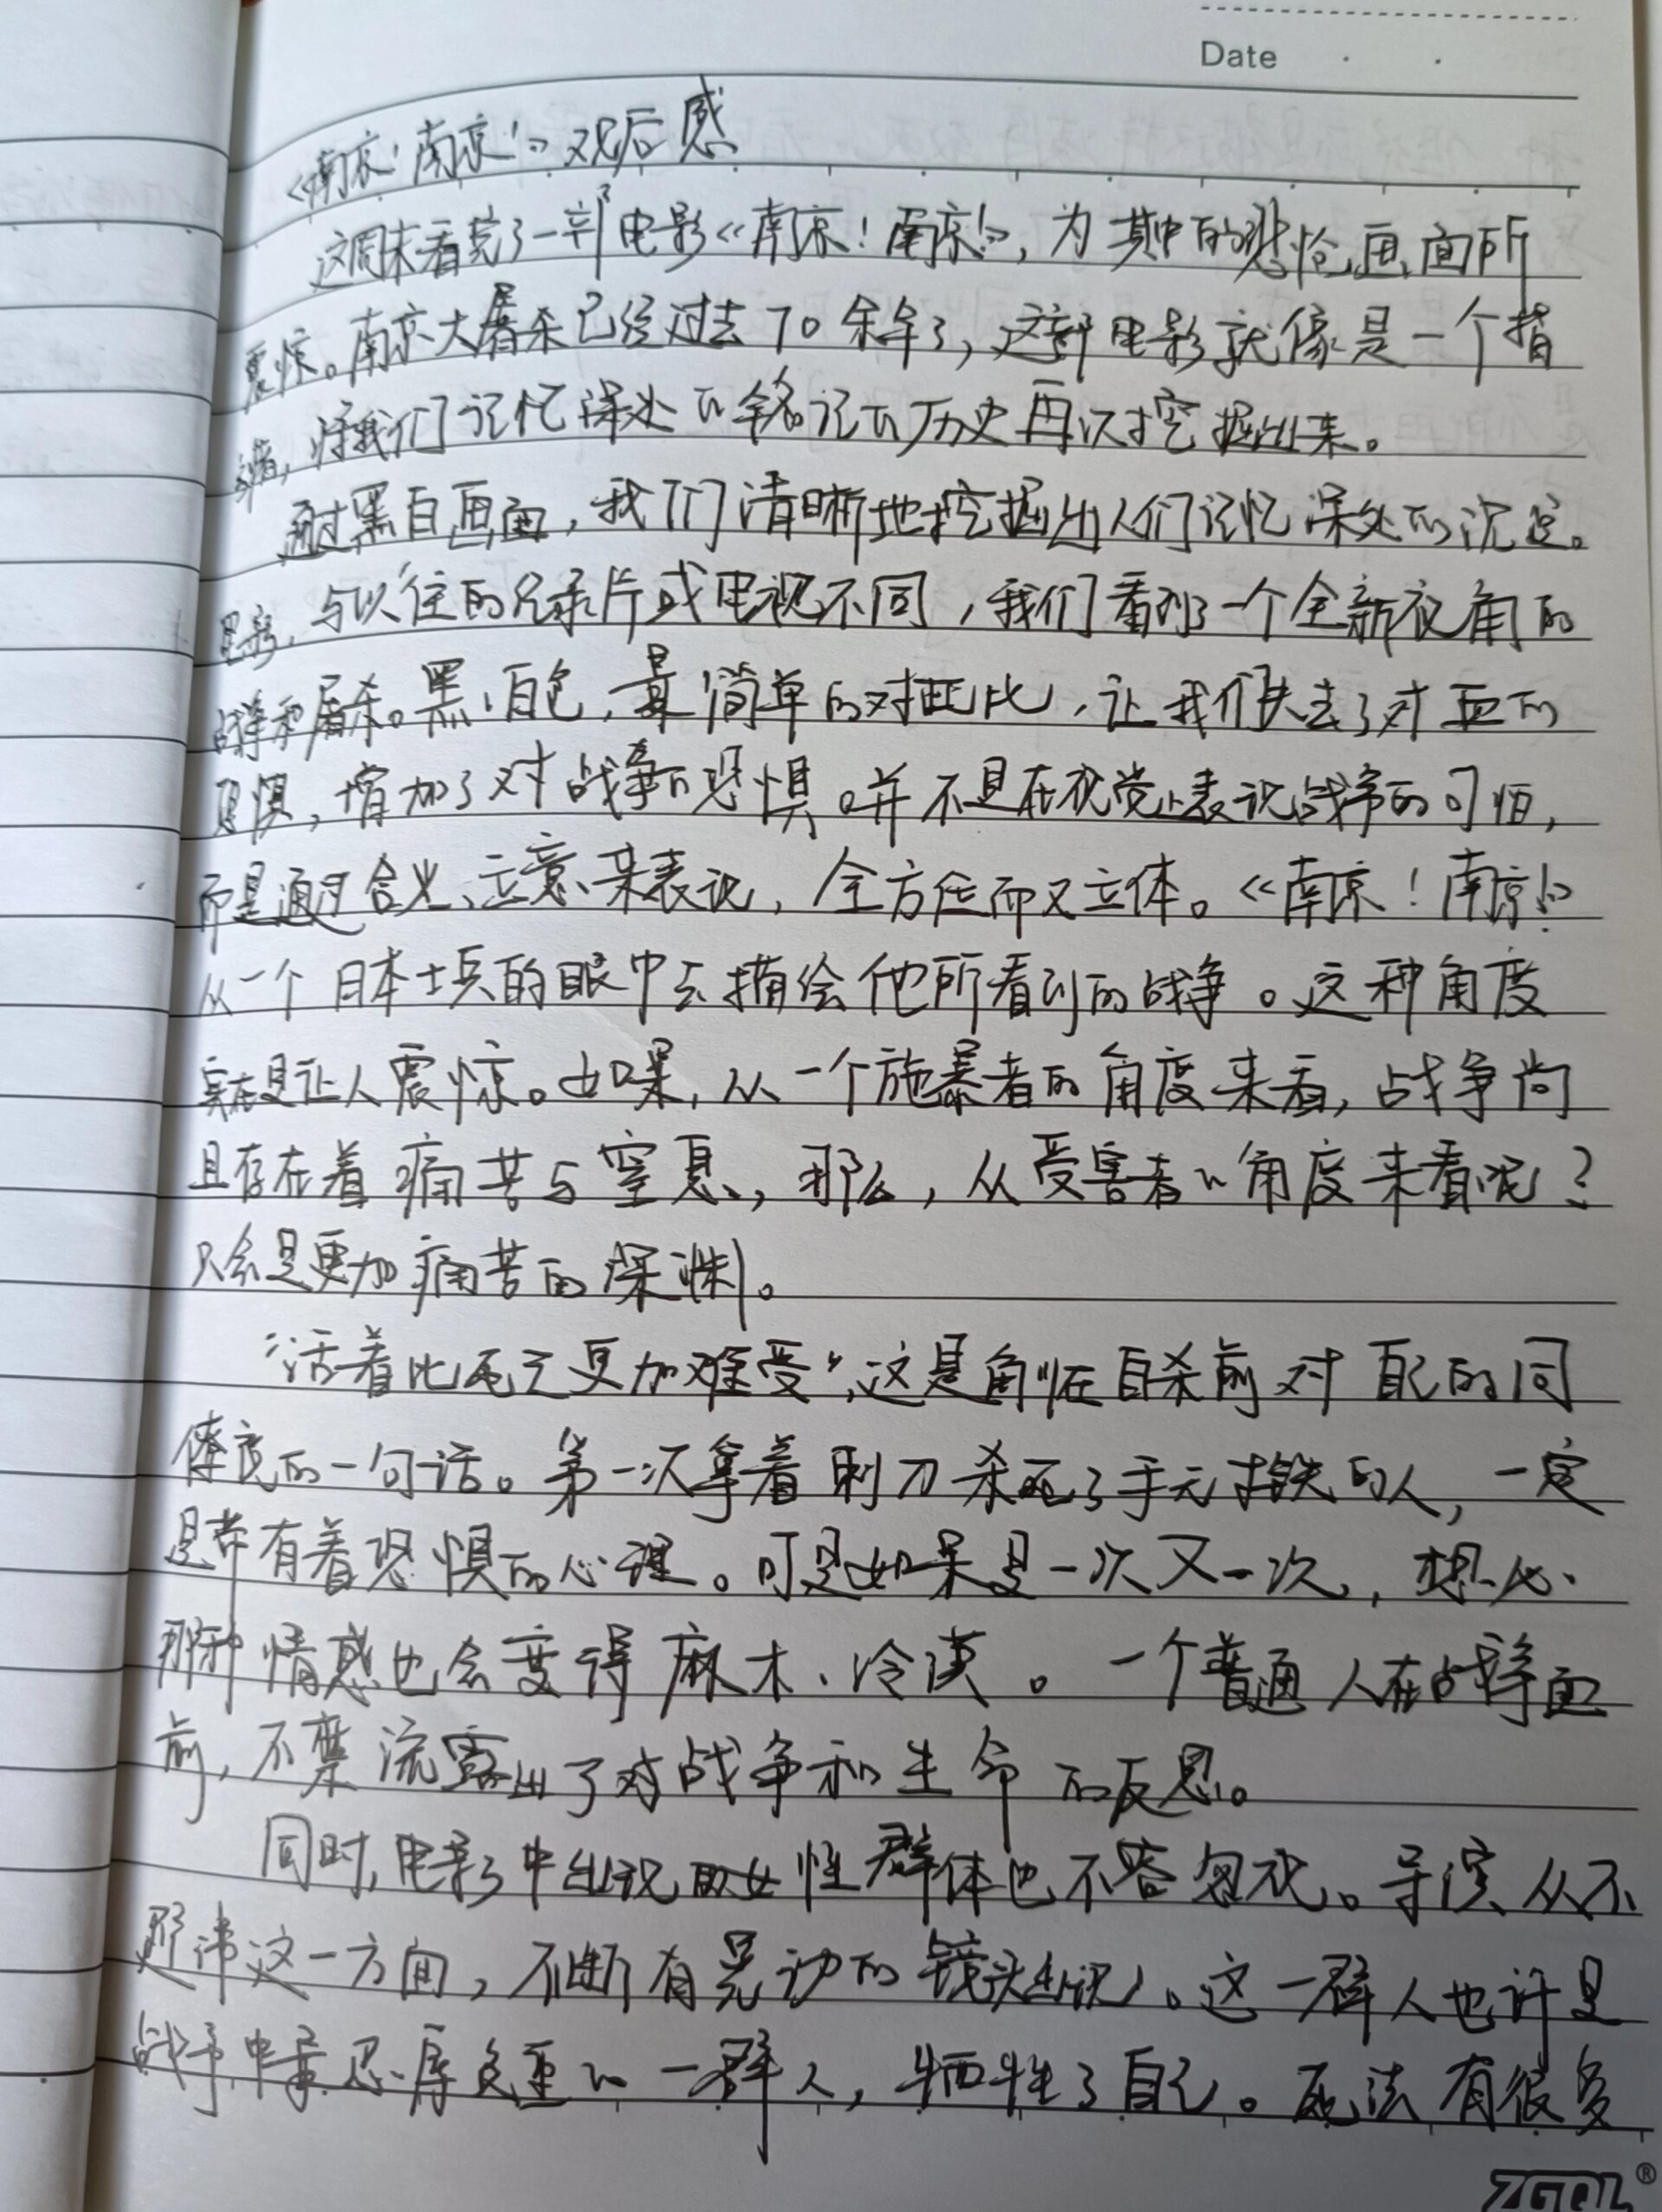 Date
《南京！南京！》观后感
这周末看完了一部电影《南京！南京！》，为其中的悲怆画面所
震惊。南京大屠杀已经过去70余年了，这部电影就像是一个指
将我们记忆深处的铭记的历史再次挖掘出来。
通过黑白画面，我们清晰地挖掘出人们记忆深处的沉淀。
与以往的纪录片或电视不同，我们看到了一个全新视角的
战争和屠杀。黑、白色，最简单的对比，让我们失去了对血的
恐惧，增加了对战争的恐惧。并不是在视觉上表现战争的可怕，
而是通过含义、立意来表现，全方位而又立体。《南京！南京！》
从一个日本士兵的眼中去描绘他所看到的战争。这种角度
实在是让人震惊。如果，从一个施暴者的角度来看，战争尚
且存在着痛苦与窒息，那么，从受害者的角度来看呢？
只会是更加痛苦的深渊。
“活着比死亡更加难受”，这是角川在自杀前对自己的同
僚说的一句话。第一次拿着刺刀杀死了手无寸铁的人，一定
是带有着恐惧的心理。可是如果是一次又一次，想必
那种情感也会变得麻木、冷漠。一个普通人在战争面
前，不禁流露出了对战争和生命的反思。
同时，电影中出现的女性群体也不容忽视。导演从不
避讳这一方面，不断有晃动的镜头出现。这一群人也许是
战争中最忍辱负重的一群人，牺牲了自己。死法有很多
ZGOL®